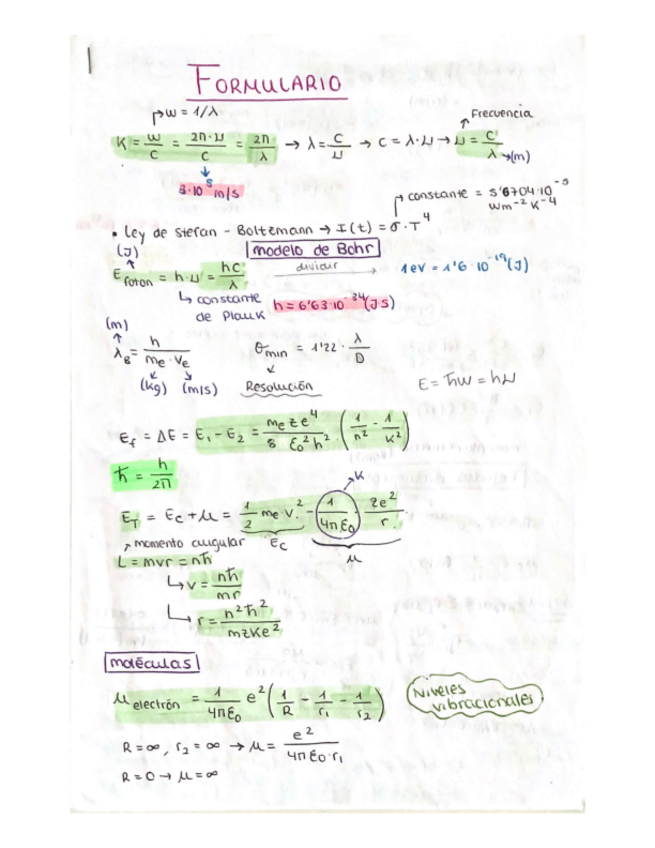 FORMULARIO
w = 1/λ
Frecuencia
K = w/c = 2π·ν/c = 2π/λ → λ = c/ν → c = λ·ν → ν = c/λ → (m)
3·10⁸ m/s
constante = 5'6704·10⁻⁸ Wm⁻² K⁻⁴
• Ley de Stefan - Boltzmann → I(t) = σ·T⁴
(J)
modelo de Bohr
E foton = h·ν = hc/λ
dividir
1eV = 1'6·10⁻¹⁹ (J)
↳ constante de Plank
h = 6'63·10⁻³⁴ (J·S)
(m)
λB = h / me·ve
(kg) (m/s)
θmin = 1'22·λ/D
Resolución
E = ħw = hν
Ef = ΔE = E₁ - E₂ = me ze⁴ / 8 ε₀² h² (1/n² - 1/K²)
ħ = h/2π
→ K
ET = Ec + μ = 1/2 me v.² - 1/4πε₀ · ze²/r.
Ec
μ
momento angular
L = mvr = nħ
↳ v = nħ/mr
↳ r = n²ħ²/mzKe²
moléculas
μ electrón = 1/4πε₀ e² (1/R - 1/r₁ - 1/r₂)
Niveles
vibracionales
R = ∞, r₂ = ∞ → μ = e²/4πε₀·r₁
R = 0 → μ = ∞